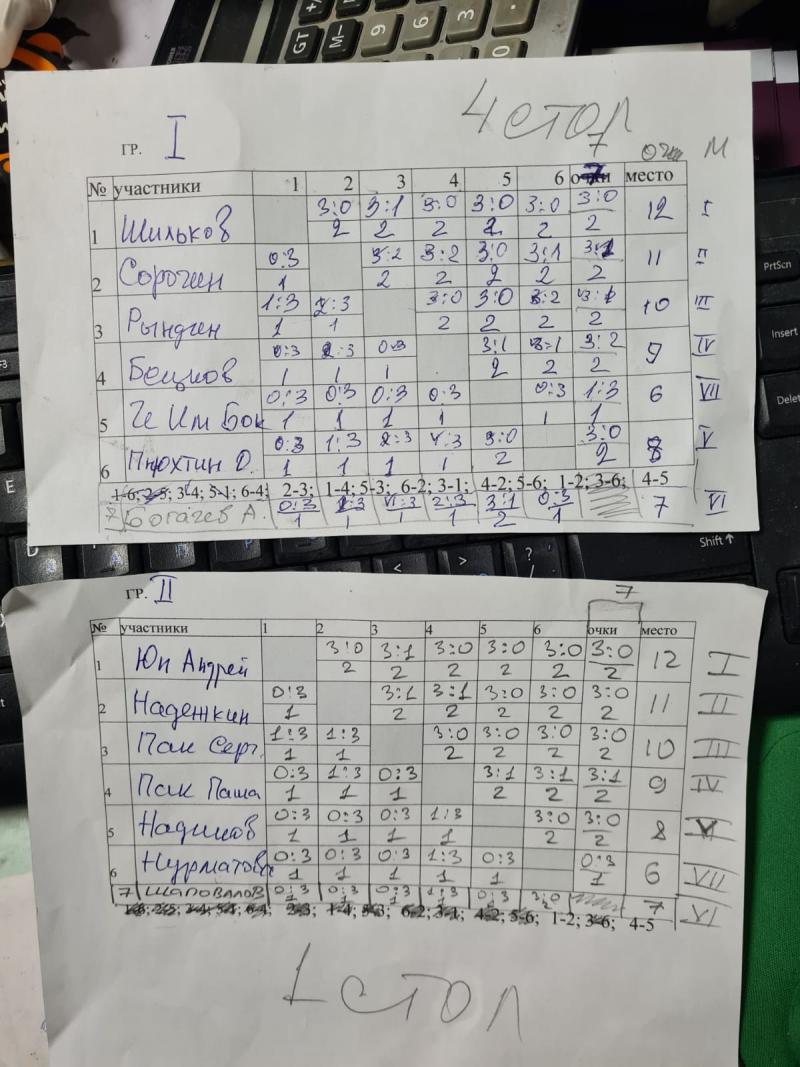 GT M- 9 6 3 0
4 СТОЛ
ГР. I
7 очи М
№ участники 1 2 3 4 5 6 7 место
1 Шильков 3:0 3:1 3:0 3:0 3:0 3:0 12 I
2 2 2 2 2 2
2 Сорочин 0:3 3:2 3:2 3:0 3:1 3:1 11 II
1 2 2 2 2 2
3 Рындин 1:3 2:3 3:0 3:0 3:2 3:1 10 III
1 1 2 2 2 2
4 Бецков 0:3 2:3 0:3 3:1 3:1 3:2 9 IV
1 1 1 2 2 2
5 Че Им Бок 0:3 0:3 0:3 0:3 0:3 1:3 6 VII
1 1 1 1 1 1
6 Пнюхтин О. 0:3 1:3 2:3 1:3 3:0 3:0 8 V
1 1 1 1 2 2
1-6; 2-5; 3-4; 5-1; 6-4; 2-3; 1-4; 5-3; 6-2; 3-1; 4-2; 5-6; 1-2; 3-6; 4-5
7 Богачев А. 0:3 1:3 1:3 2:3 3:1 0:3 7 VI
1 1 1 1 2 1
PrtScn
Insert
Delet
F3
E
D
< > ?
Shift ↑
ГР. II
7
№ участники 1 2 3 4 5 6 очки место
1 Юн Андрей 3:0 3:1 3:0 3:0 3:0 3:0 12 I
2 2 2 2 2 2
2 Надежкин 0:3 3:1 3:1 3:0 3:0 3:0 11 II
1 2 2 2 2 2
3 Пак Серг. 1:3 1:3 3:0 3:0 3:0 3:0 10 III
1 1 2 2 2 2
4 Пак Паша 0:3 1:3 0:3 3:1 3:1 3:1 9 IV
1 1 1 2 2 2
5 Надиков 0:3 0:3 0:3 1:3 3:0 3:0 8 V
1 1 1 1 2 2
6 Нурматова 0:3 0:3 0:3 1:3 0:3 0:3 6 VII
1 1 1 1 1 1
7 ШАПОВАЛОВ 0:3 0:3 0:3 1:3 0:3 3:0 7 VI
1 1 1 1 1 2
1-6; 2-5; 3-4; 5-1; 6-4; 2-3; 1-4; 5-3; 6-2; 3-1; 4-2; 5-6; 1-2; 3-6; 4-5
1 СТОЛ